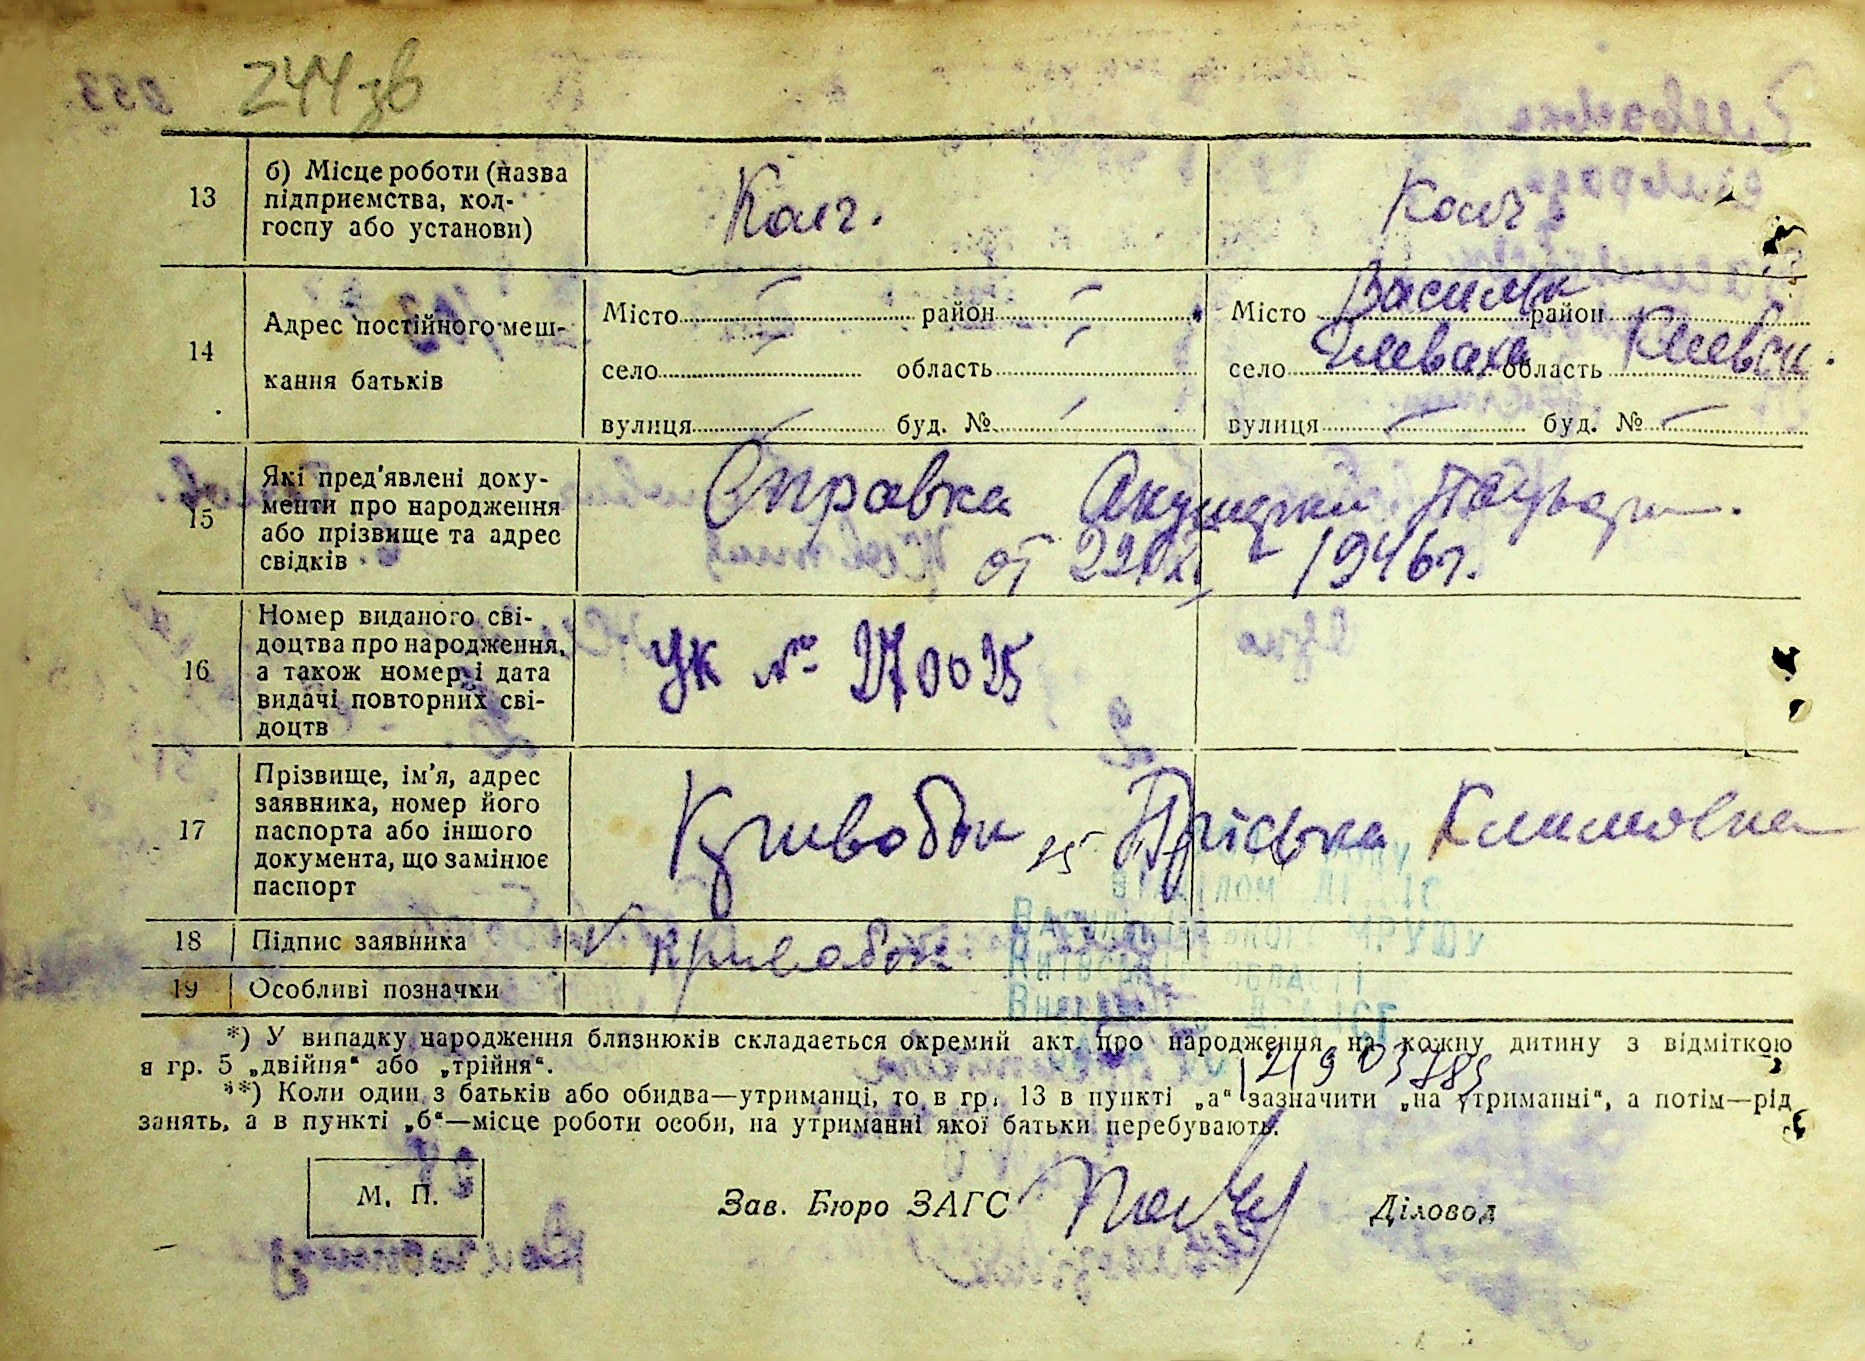 244 зв
13
б) Місце роботи (назва
підприємства, кол-
госпу або установи)
Колг.
Колг.
14
Адрес постійного меш-
кання батьків
Місто район
село область
вулиця буд. №
Місто Васильк район
село Глеваха область Киевск.
вулиця буд. №
15
Які пред'явлені доку-
менти про народження
або прізвище та адрес
свідків
Справка Акушерки
от 1946 г.
16
Номер виданого сві-
доцтва про народження,
а також номер і дата
видачі повторних сві-
доцтв
УК № 270025
17
Прізвище, ім'я, адрес
заявника, номер його
паспорта або іншого
документа, що замінює
паспорт
Кривобок Пріська Климовна
18
Підпис заявника
Кривобок
19
Особливі позначки
*) У випадку народження близнюків складається окремий акт про народження на кожну дитину з відміткою
в гр. 5 „двійня“ або „трійня“.
**) Коли один з батьків або обидва—утриманці, то в гр. 13 в пункті „а“ зазначити „на утриманні“, а потім—рід
занять, а в пункті „б“—місце роботи особи, на утриманні якої батьки перебувають.
М. П.
Зав. Бюро ЗАГС
Діловод